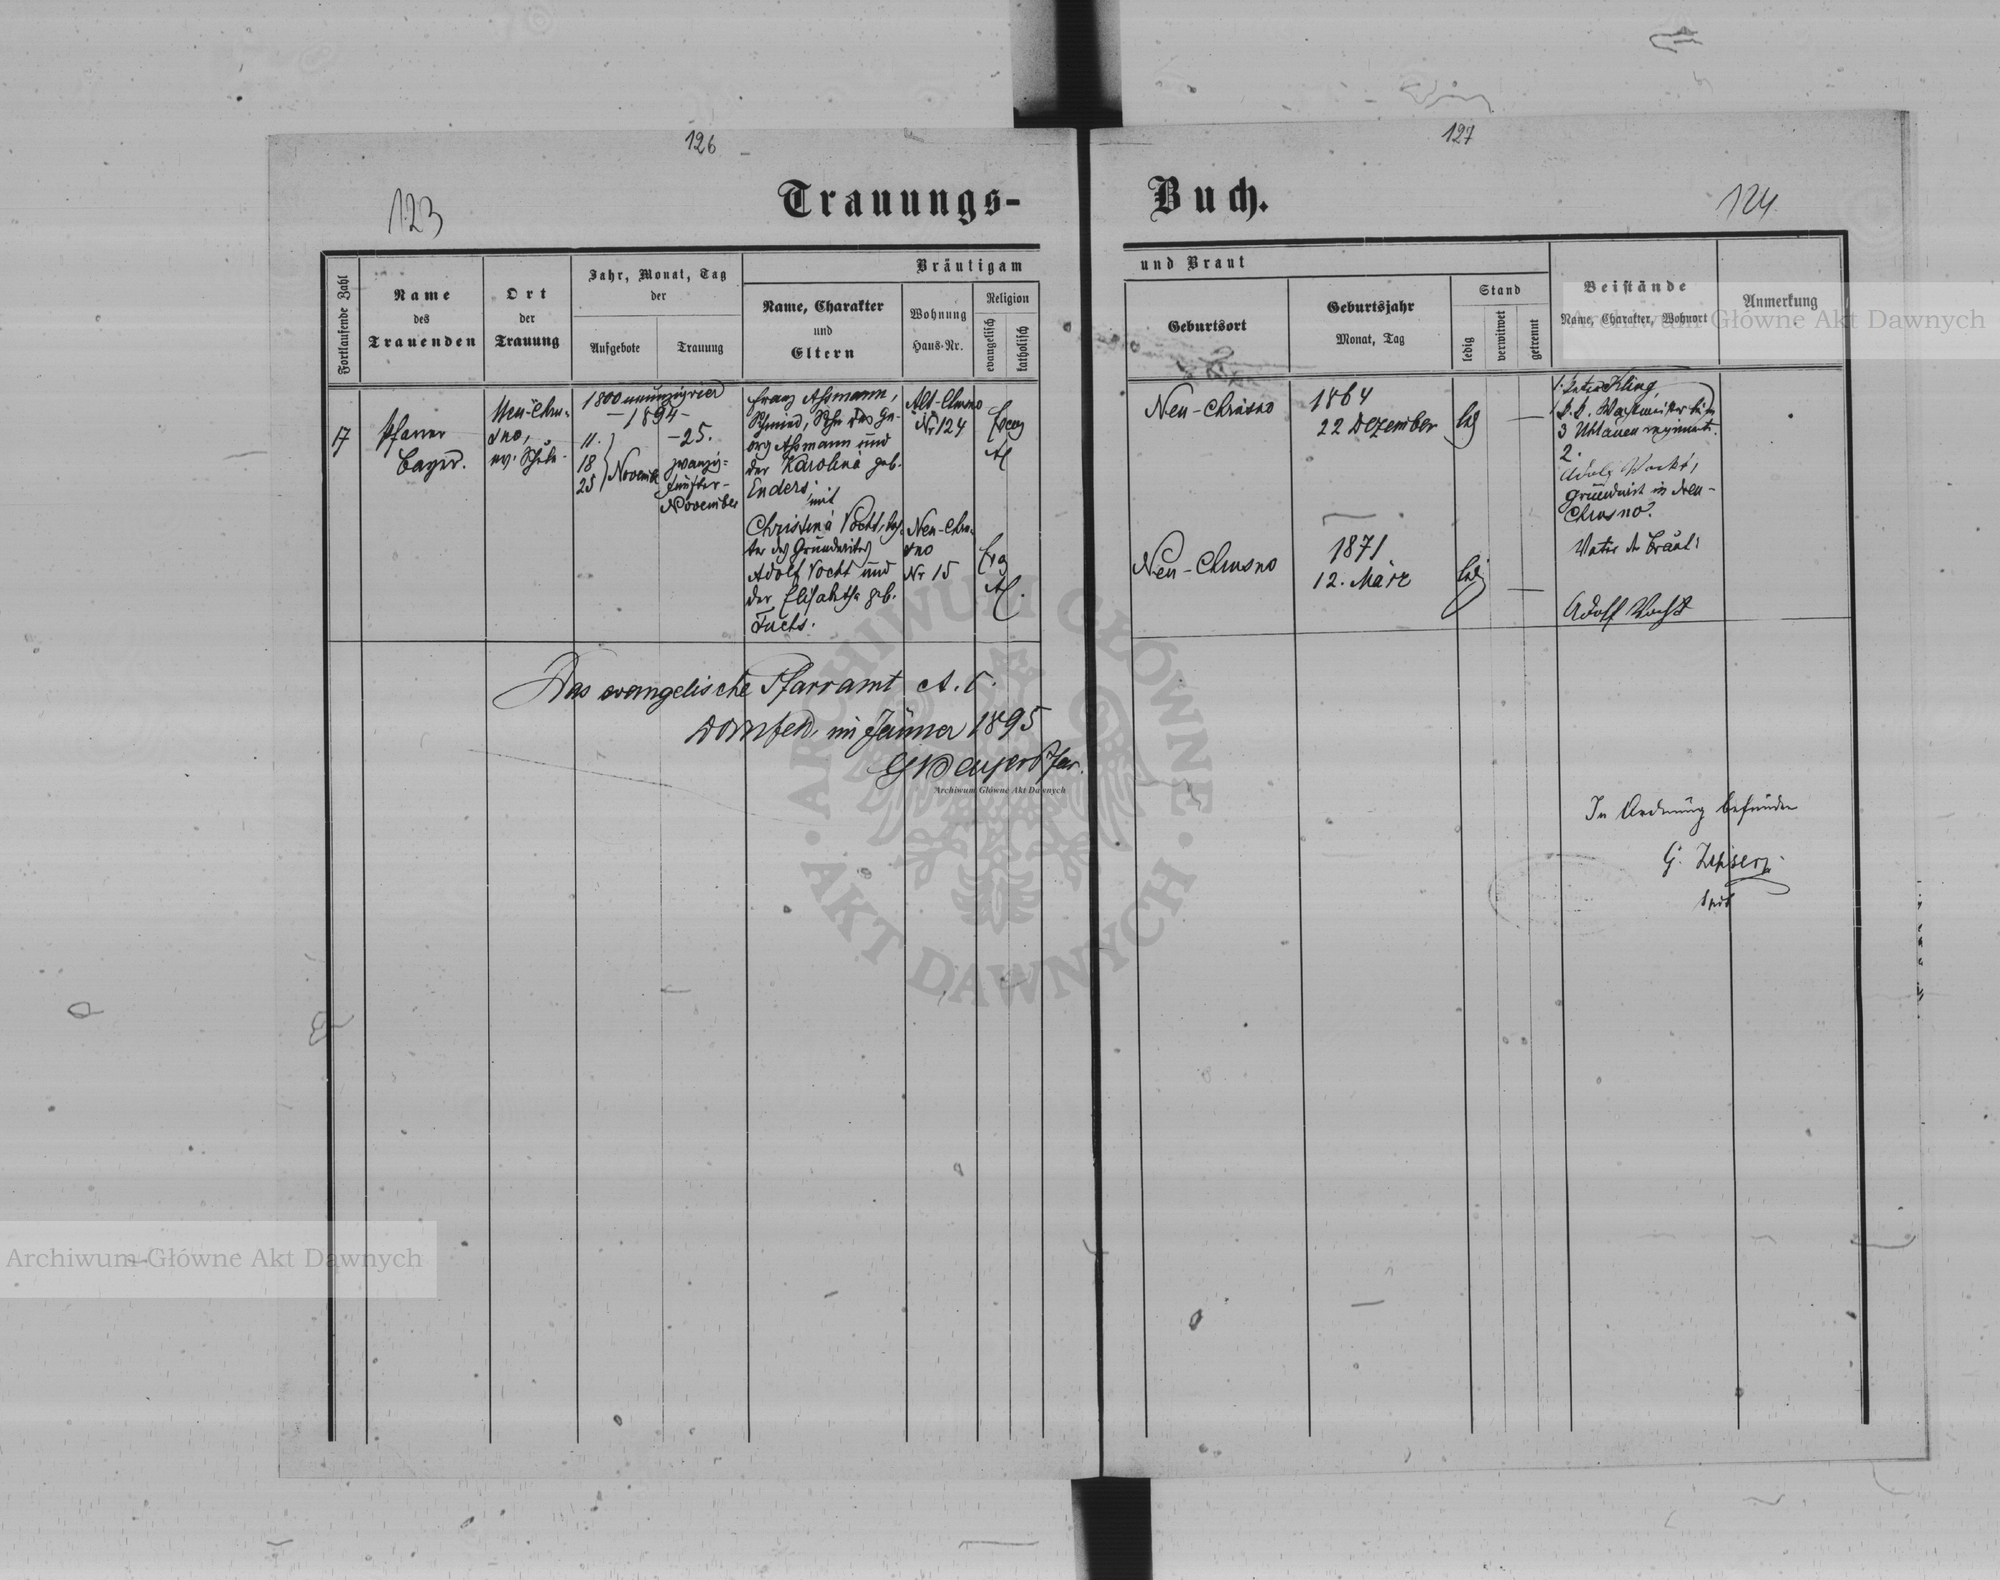 126
127
123
124
Trauungs-
Buch.
Fortlaufende Zahl
Name
des
Trauenden
Ort
der
Trauung
Jahr, Monat, Tag
der
Aufgebote
Trauung
Bräutigam
Name, Charakter
und
Eltern
Wohnung
Haus-Nr.
Religion
evangelisch
katholisch
und Braut
Geburtsort
Geburtsjahr
Monat, Tag
Stand
ledig
verwitwet
getrennt
Beistände
Name, Charakter, Wohnort
Anmerkung
17
Pfarrer
Bayer.
Neu-Chru-
sno,
ev. Schule
1800 neunzigvier
- 1894 -
11.
18
25
November
- 25.
zwanzig-
fünfter -
November
Franz Aßmann,
Schmied, Sohn des Ge-
org Aßmann und
der Karolina geb.
Enders
mit
Christina Vocht, Toch-
ter des Grundwirtes
Adolf Vocht und
der Elisabetha geb.
Fuchs.
Alt-Chrusno
Nr 124
Neu-Chru-
sno
Nr 15
Evg
AC
Evg
AC.
Neu-Chrusno
1864
22 Dezember
led
Neu-Chrusno
1871
12. März
led
1. Kling,
k. k. Wachtmeister beim
3 Uhlanen regiment.
2.
Adolf Vocht,
Grundwirt in Neu-
Chrusno.
Vater der Braut:
Adolf Vocht
Das evangelische Pfarramt A. C.
Dornfeld, im Jänner 1895
Bayer Pfar.
In Ordnung befunden
G.
Archiwum Główne Akt Dawnych
Archiwum Główne Akt Dawnych
Archiwum Główne Akt Dawnych
ARCHIWUM GŁÓWNE
· AKT DAWNYCH ·